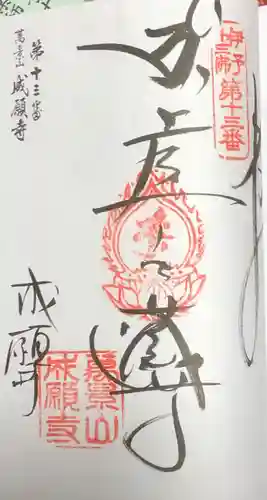 伊予
十三佛
第十三番
虚空蔵尊
第十三番
萬景山 成願寺
成願寺
萬景山
成願寺